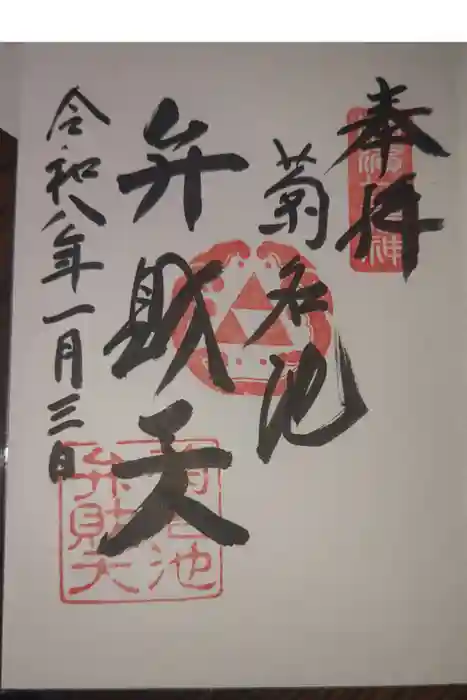 奉拝
福神
菊名池
弁財天
令和八年一月三日
菊名池
弁財天